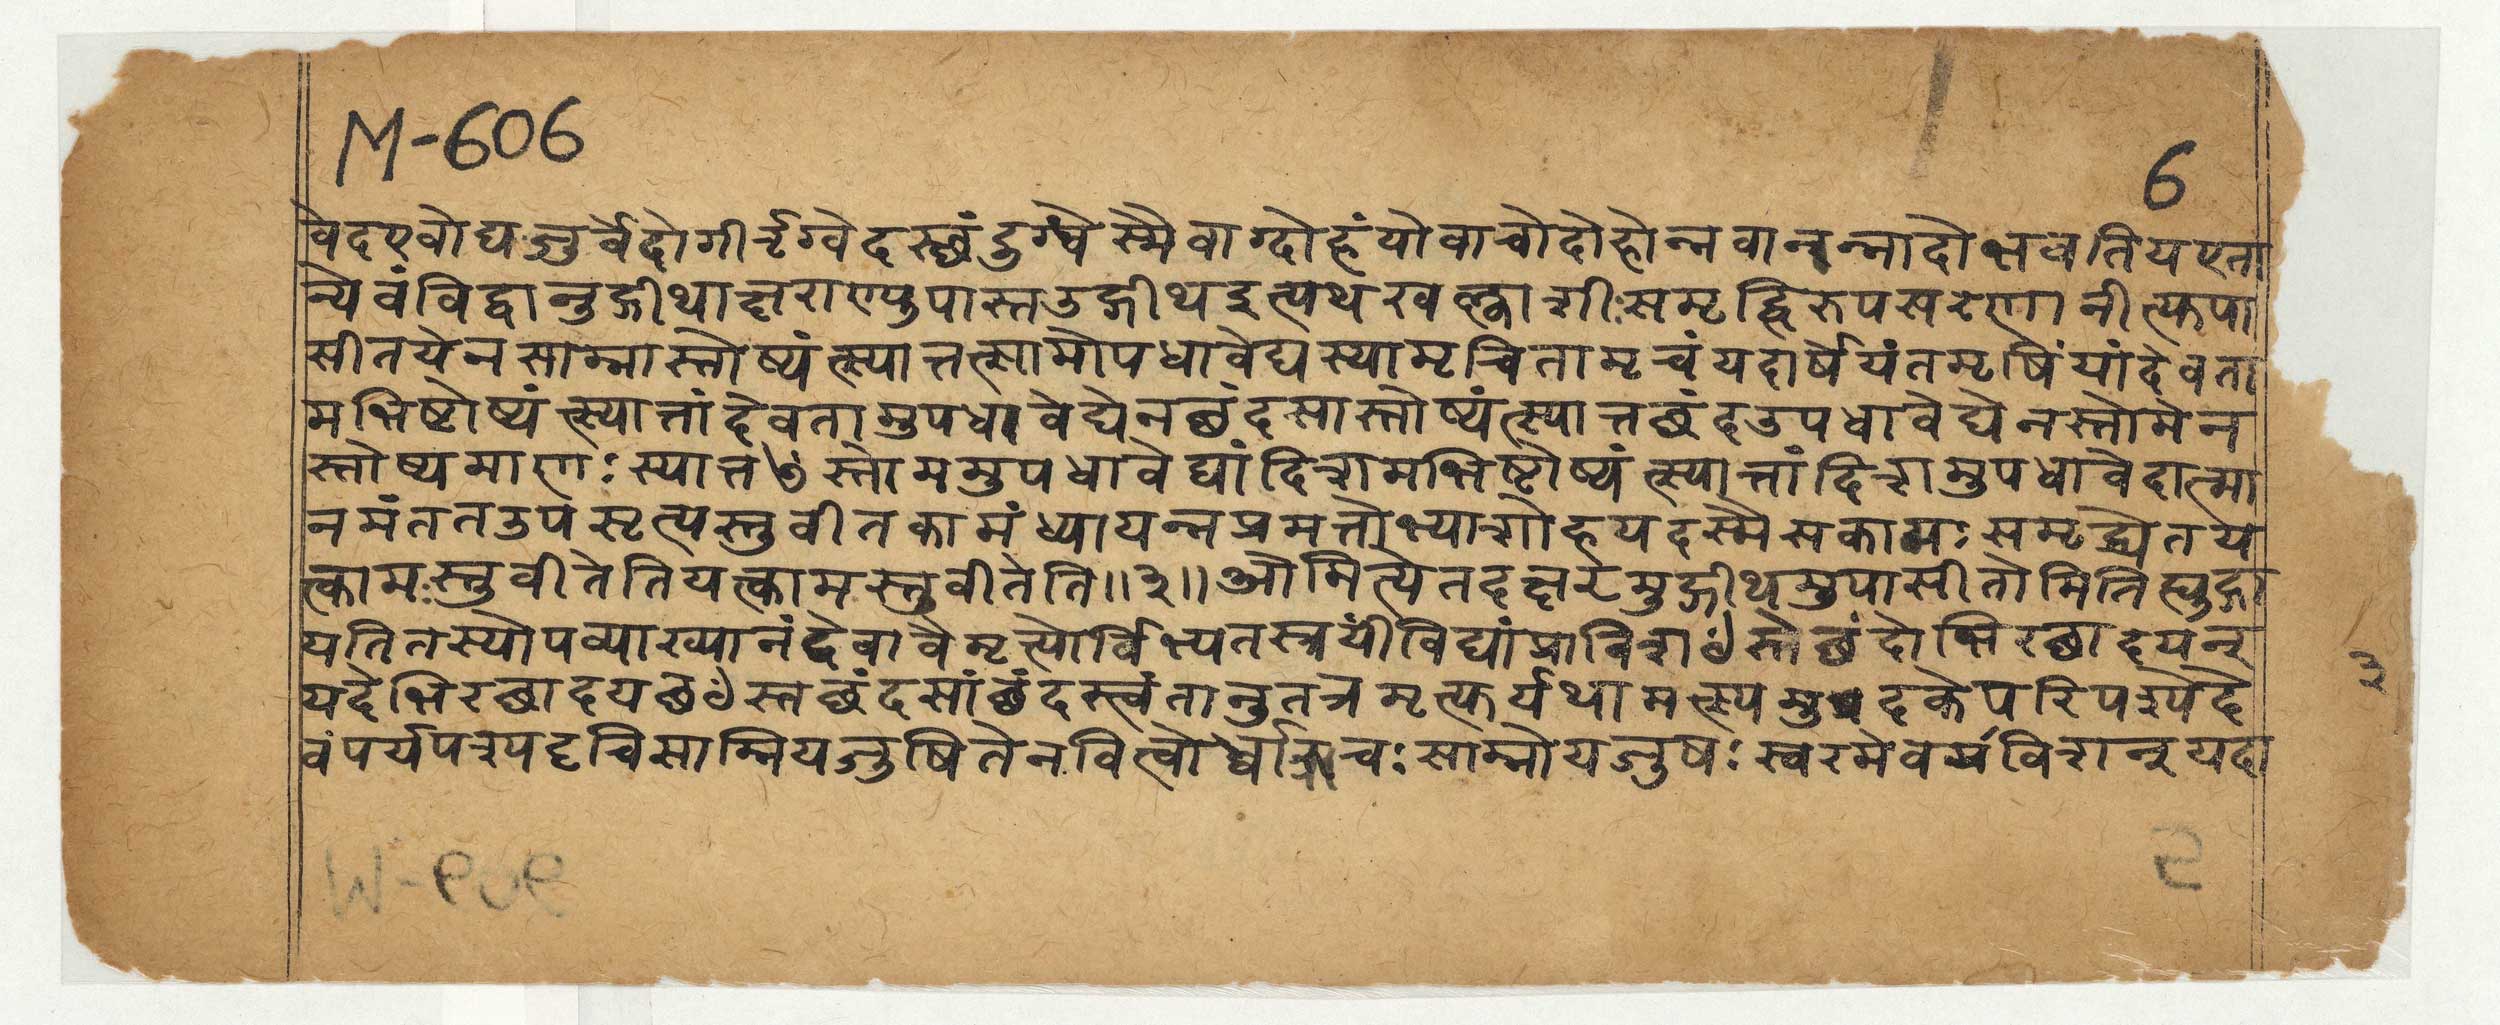 M-606
6
वेदएवोद्यजुर्वेदोगीर्ऋग्वेदस्थंदुग्धेस्मैवाग्दोहंयोवाचोदोहोन्नवानन्नादोभवतियएता
न्येवंविद्वानुद्गीथाक्षराण्युपास्तउद्गीथइत्यथखल्वाशीःसमृद्धिरुपसरणानीत्युपा
सीतयेनसाम्नास्तोष्यंत्स्यात्तत्सामोपधावेद्यस्यामृचितामृचंयदार्षेयंतमृषिंयांदेवता
मभिष्टोष्यंत्स्यात्तांदेवतामुपधावेद्येनछंदसास्तोष्यंत्स्यात्तछंदउपधावेद्येनस्तोमेन
स्तोष्यमाणःस्यात्तꣳस्तोममुपधावेद्यांदिशमभिष्टोष्यंत्स्यात्तांदिशमुपधावेदात्मा
नमंततउपसृत्यस्तुवीतकामंध्यायन्नप्रमत्तोभ्याशोहयदस्मैसकामःसमृद्ध्येतय
त्कामःस्तुवीतेतियत्कामस्तुवीतेति॥३॥ओमित्येतदक्षरमुद्गीथमुपासीतोमितिह्युद्गा
यतितस्योपव्याख्यानंदेवावैमृत्योर्बिभ्यतस्त्रयींविद्यांप्राविशꣳस्तेछंदोभिरछादयन्
यदेभिरछादयछꣳस्तछंदसांछंदस्त्वंतानुतत्रमृत्युर्यथामत्स्यमुदकेपरिपश्येदे
वंपर्यपश्यदृचिसाम्नियजुषितेनवित्वोर्ध्वाऋचःसाम्नोयजुषःस्वरमेवप्रविशन्यदा
३